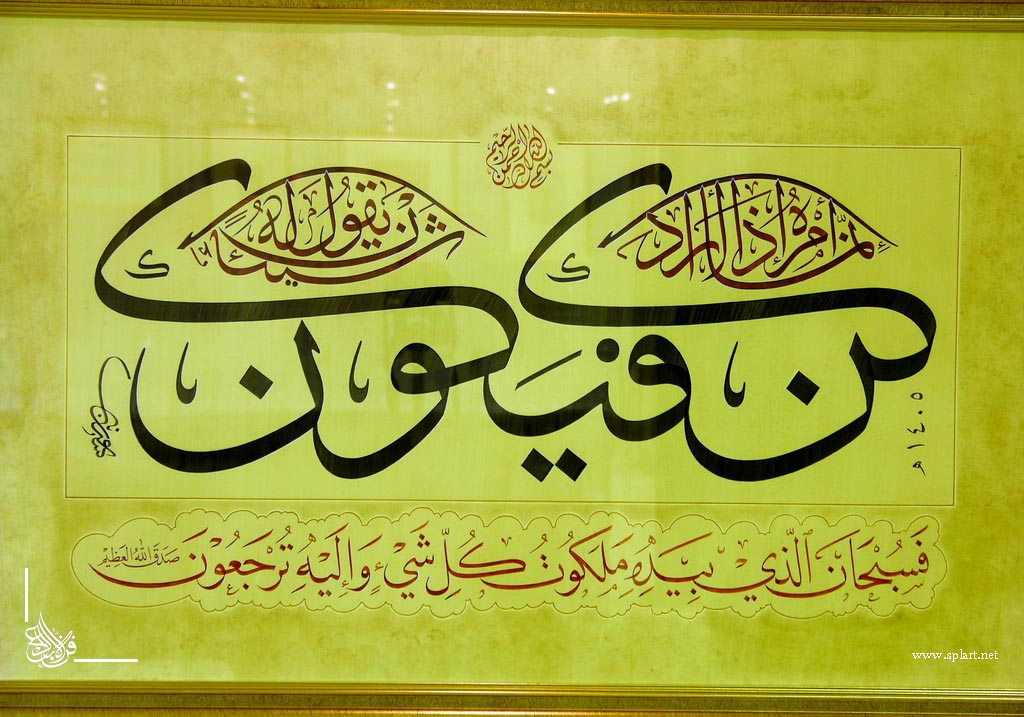 بسم الله الرحمن الرحيم
إِنَّمَا أَمْرُهُ إِذَا أَرَادَ
شَيْئًا أَنْ يَقُولَ لَهُ
كن فيكون
١٤٠٥ هـ
فَسُبْحَانَ الَّذِي بِيَدِهِ مَلَكُوتُ كُلِّ شَيْءٍ وَإِلَيْهِ تُرْجَعُوْنَ
صَدَقَ اللهُ العَظِيْم
www.splart.net